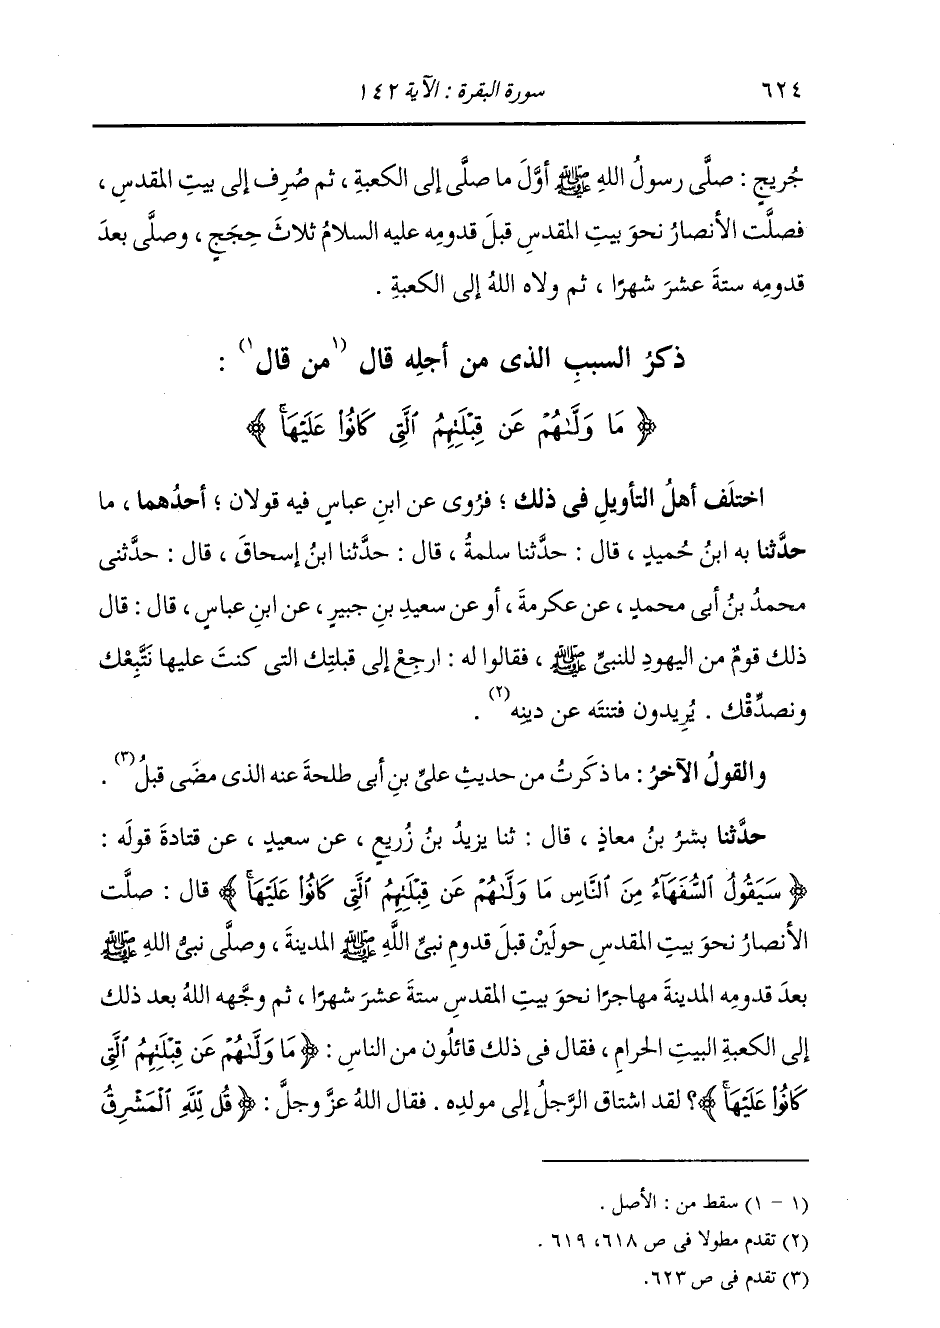 ٦٢٤ سورة البقرة : الآية ١٤٢
جُريجٍ : صلَّى رسولُ اللهِ ﷺ أوَّلَ ما صلَّى إلى الكعبةِ ، ثم صُرِف إلى بيتِ المقدسِ ،
فصلَّت الأنصارُ نحوَ بيتِ المقدسِ قبلَ قدومِه عليه السلامُ ثلاثَ حِجَجٍ ، وصلَّى بعدَ
قدومِه ستةَ عشرَ شهرًا ، ثم ولاه اللهُ إلى الكعبةِ .
ذكرُ السببِ الذى من أجلِه قال (١من قال١) :
﴿ مَا وَلَّىٰهُمْ عَن قِبْلَتِهِمُ ٱلَّتِى كَانُوا۟ عَلَيْهَا ۚ ﴾
اختلَف أهلُ التأويلِ فى ذلك ؛ فرُوى عن ابنِ عباسٍ فيه قولان ؛ أحدُهما ، ما
حدَّثنا به ابنُ حُميدٍ ، قال : حدَّثنا سلمةُ ، قال : حدَّثنا ابنُ إسحاقَ ، قال : حدَّثنى
محمدُ بنُ أبى محمدٍ ، عن عكرمةَ ، أو عن سعيدِ بنِ جبيرٍ ، عن ابنِ عباسٍ ، قال : قال
ذلك قومٌ من اليهودِ للنبىِّ ﷺ ، فقالوا له : ارجِعْ إلى قبلتِك التى كنتَ عليها نَتَّبِعْك
ونصدِّقْك . يُرِيدون فتنتَه عن دينِه(٢) .
والقولُ الآخرُ : ما ذكَرتُ من حديثِ علىِّ بنِ أبى طلحةَ عنه الذى مضَى قبلُ(٣) .
حدَّثنا بشرُ بنُ معاذٍ ، قال : ثنا يزيدُ بنُ زُريعٍ ، عن سعيدٍ ، عن قتادةَ قولَه :
﴿ سَيَقُولُ ٱلسُّفَهَآءُ مِنَ ٱلنَّاسِ مَا وَلَّىٰهُمْ عَن قِبْلَتِهِمُ ٱلَّتِى كَانُوا۟ عَلَيْهَا ۚ ﴾ قال : صلَّت
الأنصارُ نحوَ بيتِ المقدسِ حولَيْن قبلَ قدومِ نبىِّ اللَّهِ ﷺ المدينةَ ، وصلَّى نبىُّ اللهِ ﷺ
بعدَ قدومِه المدينةَ مهاجرًا نحوَ بيتِ المقدسِ ستةَ عشرَ شهرًا ، ثم وجَّهه اللهُ بعد ذلك
إلى الكعبةِ البيتِ الحرامِ ، فقال فى ذلك قائلُون من الناسِ : ﴿ مَا وَلَّىٰهُمْ عَن قِبْلَتِهِمُ ٱلَّتِى
كَانُوا۟ عَلَيْهَا ۚ ﴾؟ لقد اشتاق الرَّجلُ إلى مولدِه . فقال اللهُ عزَّ وجلَّ : ﴿ قُل لِّلَّهِ ٱلْمَشْرِقُ
(١ - ١) سقط من : الأصل .
(٢) تقدم مطولا فى ص ٦١٨، ٦١٩ .
(٣) تقدم فى ص ٦٢٣.